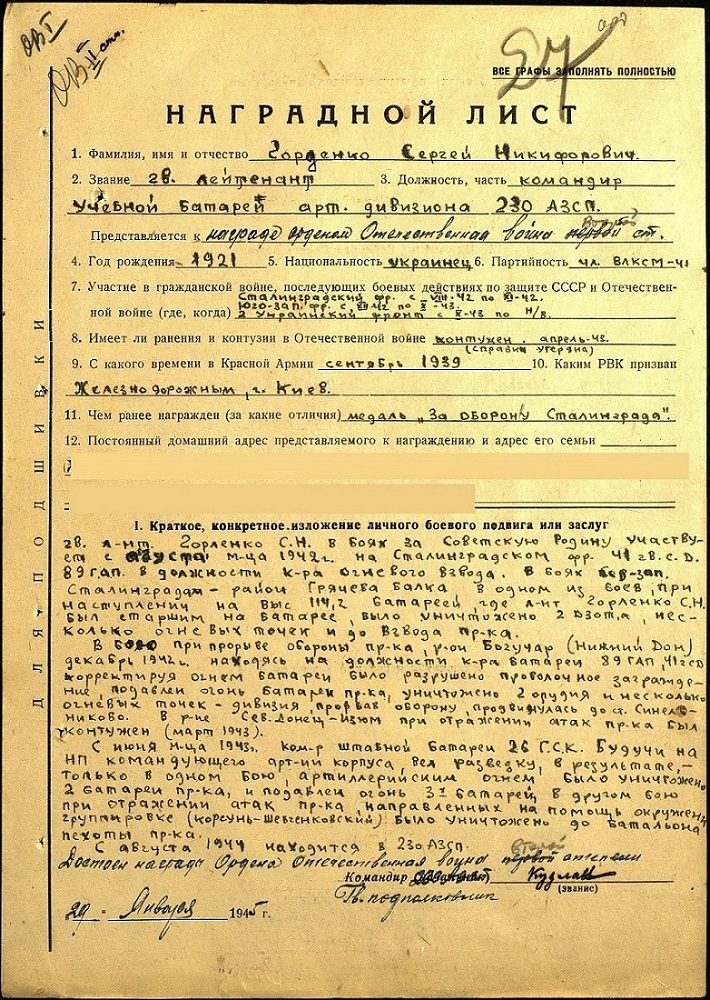 ОВ I
ОВ-II стп.
27
ВСЕ ГРАФЫ ЗАПОЛНЯТЬ ПОЛНОСТЬЮ
НАГРАДНОЙ ЛИСТ
1. Фамилия, имя и отчество Горденко Сергей Никифорович.
2. Звание гв. лейтенант 3. Должность, часть командир
учебной батареи арт. дивизиона 230 АЗСП.
Представляется к награде орденом Отечественная война первой ст.
4. Год рождения 1921 5. Национальность украинец 6. Партийность чл. ВЛКСМ-41
7. Участие в гражданской войне, последующих боевых действиях по защите СССР и Отечествен-
Сталинградский фр. с VIII-42 по XI-42.
Юго-зап. фр. с XII-42 по X-43.
ной войне (где, когда) 2 Украинский фронт с X-43 по н/в.
8. Имеет ли ранения и контузии в Отечественной войне контужен. апрель-43.
(справки утеряна)
9. С какого времени в Красной Армии сентябрь 1939 10. Каким РВК призван
Железнодорожным, г. Киев.
11. Чем ранее награжден (за какие отличия) медаль „За оборону Сталинграда".
12. Постоянный домашний адрес представляемого к награждению и адрес его семьи
I. Краткое, конкретное изложение личного боевого подвига или заслуг
гв. л-нт. Горленко С.Н. в боях за Советскую Родину участву-
ет с августа м-ца 1942г. на Сталинградском фр. 41 гв. с. д.
89 ГАП. в должности к-ра огневого взвода. В боях сев-зап.
Сталинграда – район Грачева Балка в одном из боев, при
наступлении на выс 114,2 батареей где л-нт Горленко С.Н.
был старшим на батарее, было уничтожено 2 дзота, нес-
колько огневых точек и до взвода пр-ка.
В бою при прорыве обороны пр-ка, р-он Богучар (Нижний Дон)
декабрь 1942г. находясь на должности к-ра батареи 89 ГАП 41 гсд
корректируя огнем батареи было разрушено проволочное загражде-
ние, подавлен огонь батареи пр-ка, уничтожено 2 орудия и несколько
огневых точек – дивизия, прорвав оборону, продвинулась до ст. Синель-
никово. В р-не Сев. Донец-Изюм при отражении атак пр-ка был
контужен (март 1943).
С июня м-ца 1943г. ком-р штабной батареи 26 Г.С.К. Будучи на
НП командующего арт-ии корпуса, вел разведку, в результате, –
только в одном бою, артиллерийским огнем было уничтожено
2 батареи пр-ка, и подавлен огонь 3х батарей, в другом бою
при отражении атак пр-ка, направленных на помощь окружен
группировке (Корсунь-Шевгенковский) было уничтожено до батальона
пехоты пр-ка.
С августа 1944 находится в 230 АЗСП.
второй
Достоен награда Ордена Отечественная война первой степени
Командир
(звание)
Гв. подполковник
29 Января 1945 г.
ДЛЯ ПОДШИВКИ